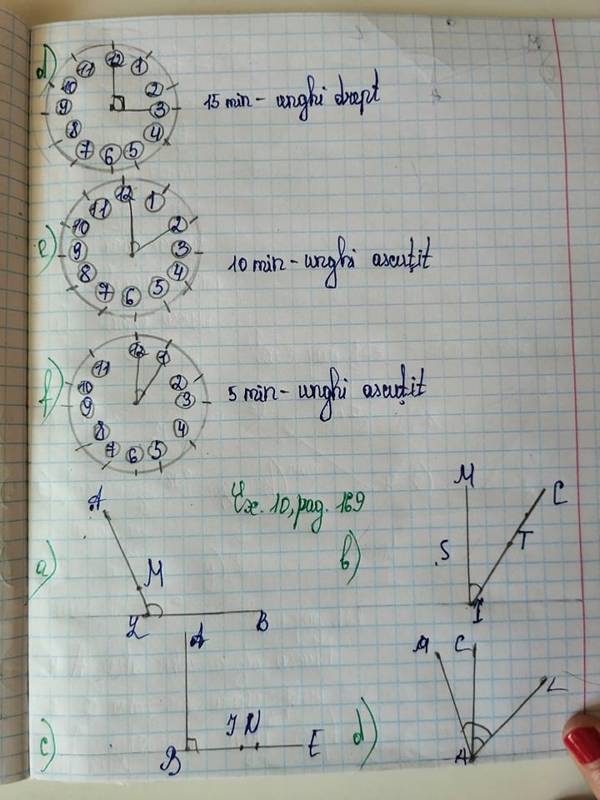 d)
12
11 1
10 2
9 3
8 4
7 6 5
15 min - unghi drept
e)
12
11 1
10 2
9 3
8 4
7 6 5
10 min - unghi ascuțit
f)
12 1
11
10 2
9 3
8 4
7 6 5
5 min - unghi ascuțit
Ex. 10, pag. 169
a)
A
M
B
b)
M
C
S
T
I
c)
A
B
I N
E
d)
M C
L
A